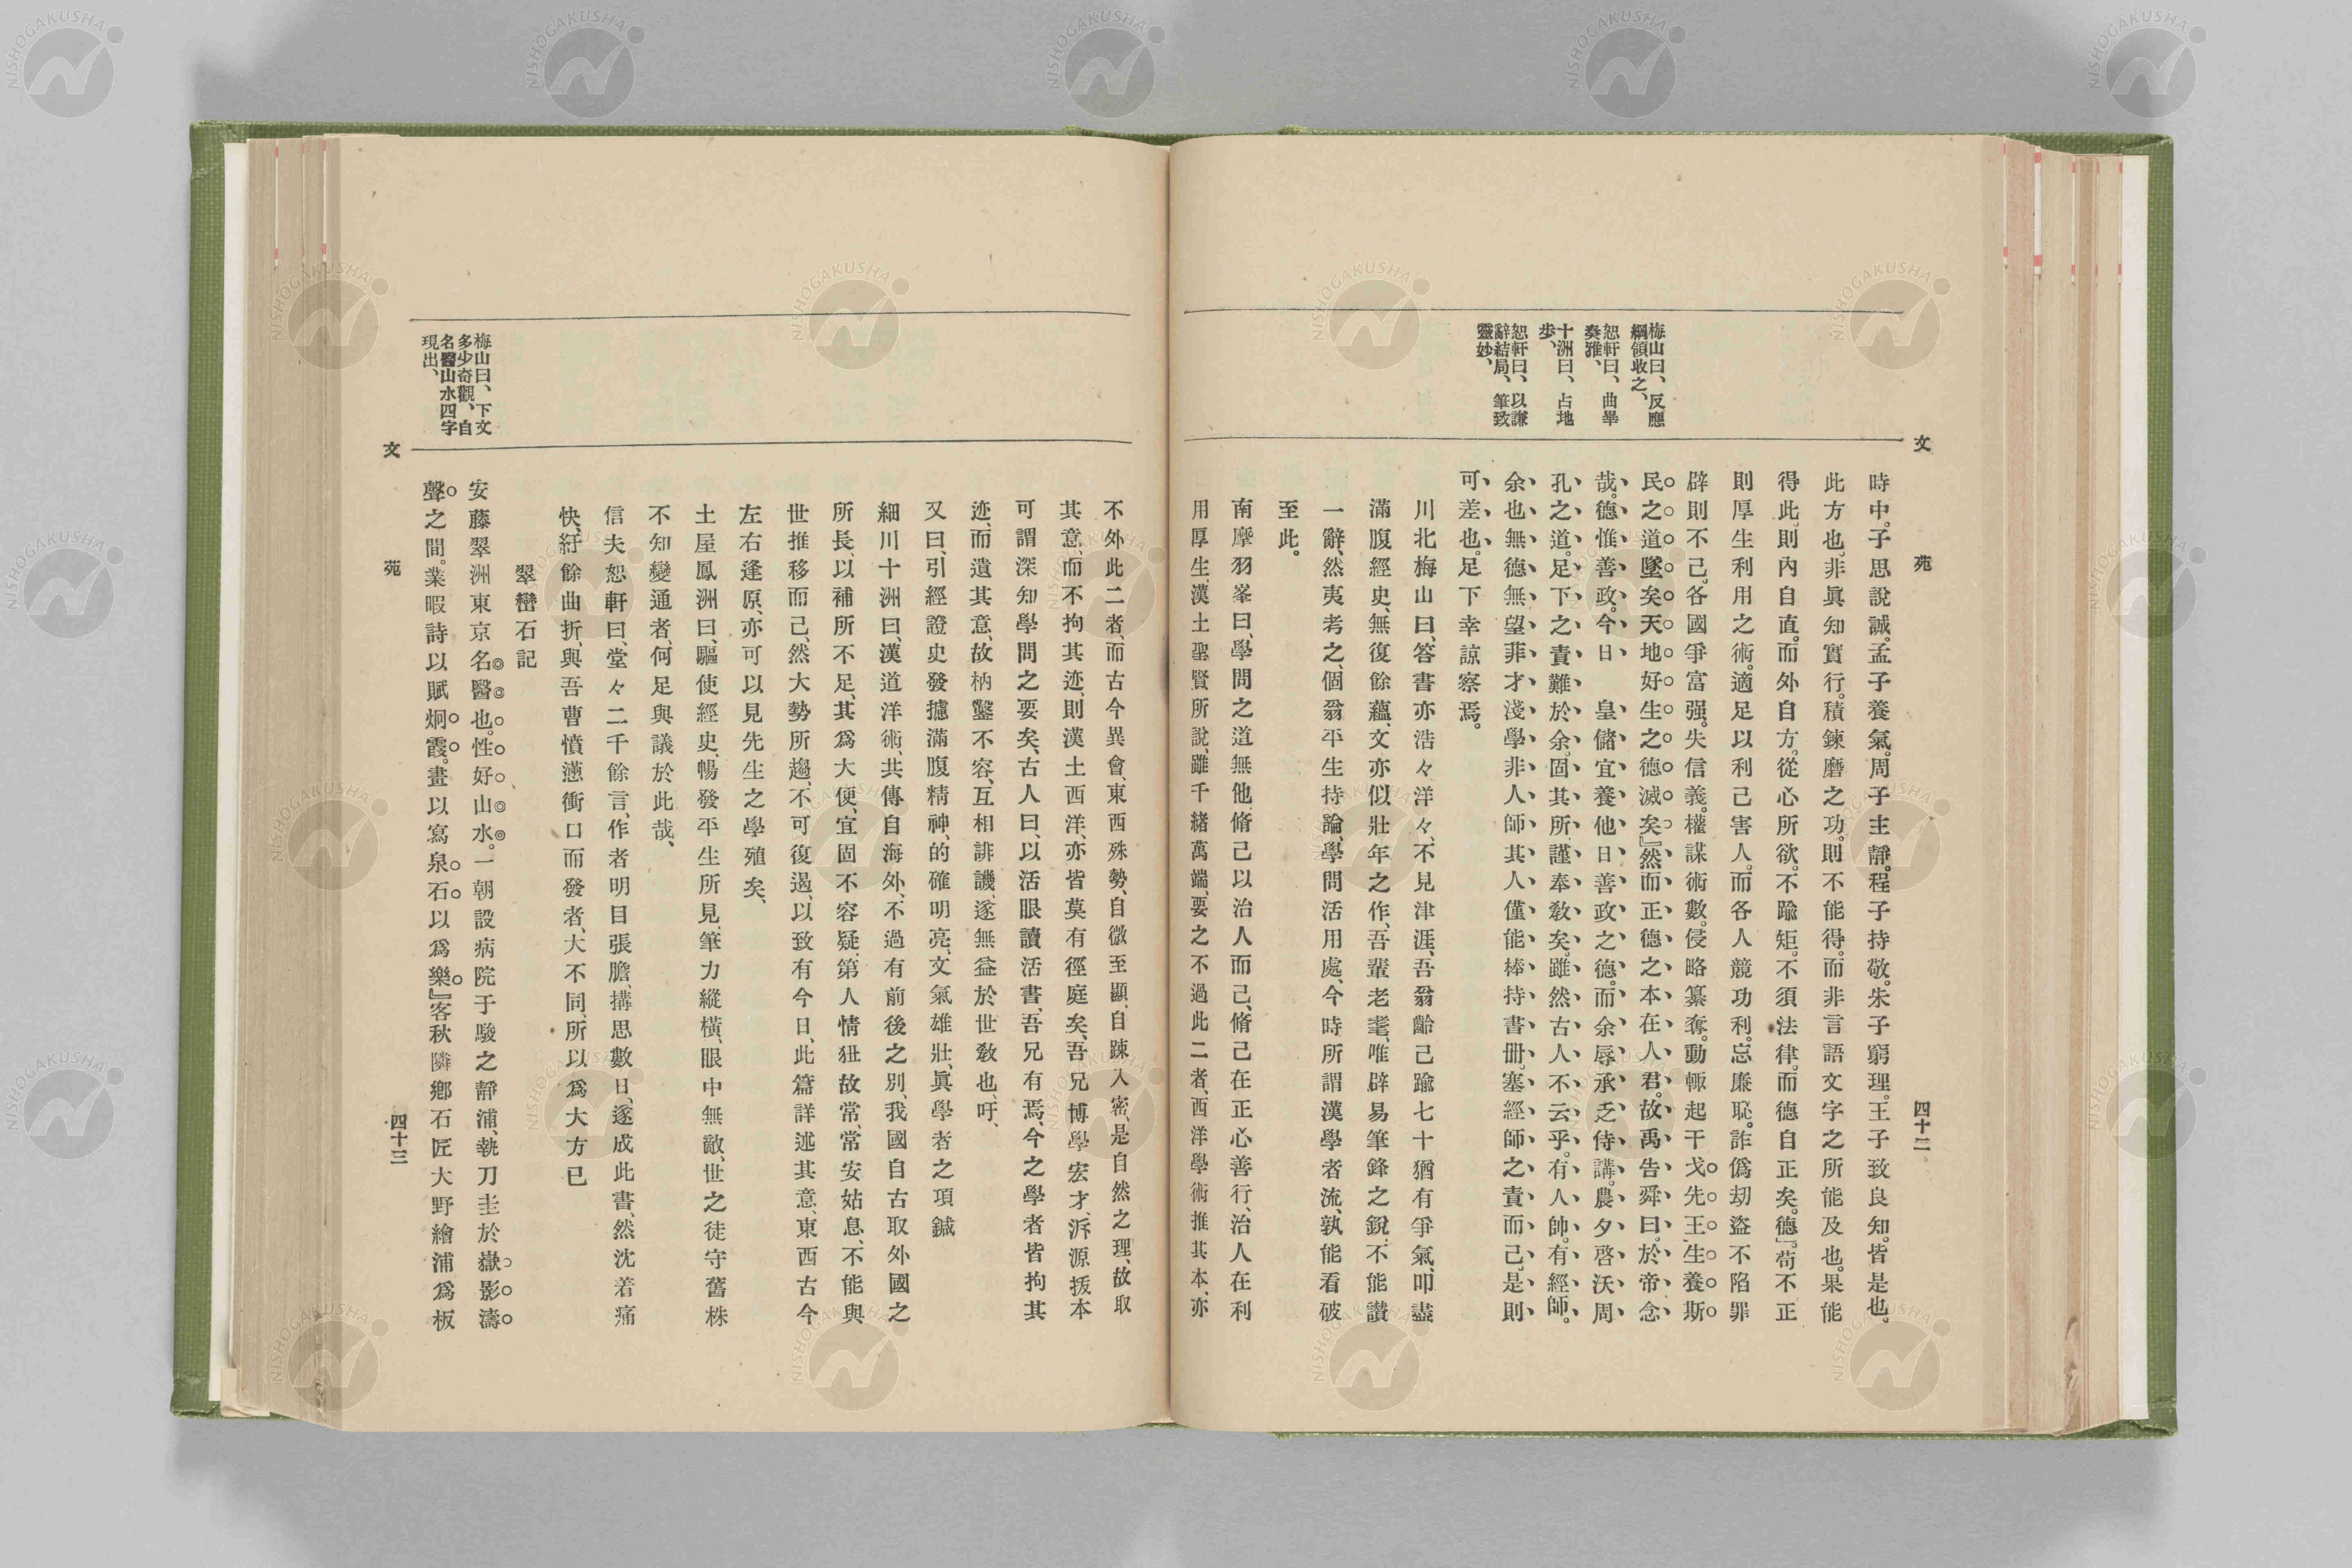 文苑
四十二
梅山曰、反應
綱領收之、
恕軒曰、曲畢
奏雅、
十洲曰、占地
步、
恕軒曰、以謙
辭結局、筆致
靈妙、
時中。子思說誠。孟子養氣。周子主靜。程子持敬。朱子窮理。王子致良知。皆是也。
此方也。非眞知實行。積鍊磨之功。則不能得。而非言語文字之所能及也。果能
得此。則內自直。而外自方。從心所欲。不踰矩。不須法律。而德自正矣。德』苟不正
則厚生利用之術。適足以利己害人。而各人競功利。忘廉恥。詐僞刧盜不陷罪
辟則不己。各國爭富强。失信義。權謀術數。侵略簒奪。動輙起干戈。先王生養斯
民之道墜矣。天地好生之德滅矣』然而正德之本在人君。故禹告舜曰。於帝念
哉。德惟善政。今日　皇儲宜養他日善政之德。而余辱承乏侍講。農夕啓沃周
孔之道。足下之責難於余。固其所謹奉敎矣。雖然古人不云乎。有人師。有經師。
余也無德無望菲才淺學非人師其人僅能棒持書册。塞經師之責而己。是則
可差也。足下幸諒察焉。
川北梅山曰、答書亦浩々洋々、不見津涯、吾翁齡己踰七十猶有爭氣、叩盡
滿腹經史、無復餘蘊、文亦似壯年之作、吾輩老耄、唯辟易筆鋒之銳、不能讚
一辭、然夷考之、個翁平生持論、學問活用處、今時所謂漢學者流、孰能看破
至此。
南摩羽峯曰、學問之道無他、脩己以治人而己、脩己在正心善行、治人在利
用厚生、漢土聖賢所說、雖千緖萬端、要之不過此二者、西洋學術推其本、亦
不外此二者、而古今異會、東西殊勢、自微至顯、自踈入密、是自然之理、故取
其意、而不拘其迹、則漢土西洋、亦皆莫有徑庭矣、吾兄博學宏才、泝源拔本
可謂深知學問之要矣、古人曰、以活眼讀活書、吾兄有焉、今之學者皆拘其
迹、而遺其意、故枘鑿不容、互相誹譏、遂無益於世敎也、吁、
又曰、引經證史發攄滿腹精神、的確明亮、文氣雄壯、眞學者之項鍼
細川十洲曰、漢道洋術、共傳自海外、不過有前後之別、我國自古取外國之
所長、以補所不足、其爲大便、宜固不容疑、第人情狃故常、常安姑息、不能與
世推移而己、然大勢所趨、不可復遏、以致有今日、此篇詳述其意、東西古今
左右逢原、亦可以見先生之學殖矣、
土屋鳳洲曰、驅使經史、暢發平生所見、筆力縱橫、眼中無敵、世之徒守舊株
不知變通者、何足與議於此哉、
信夫恕軒曰、堂々二千餘言、作者明目張膽、搆思數日、遂成此書、然沈着痛
快、紆餘曲折、與吾曹憤懣衝口而發者、大不同、所以爲大方已
翠巒石記
安藤翠洲東京名醫也。性好山水。一朝設病院于駿之靜浦、執刀圭於嶽影濤
聲之間。業暇詩以賦烱霞。畫以寫泉石以爲樂』客秋隣鄉石匠大野繪浦爲板
梅山曰、下文
多少奇觀、自
名醫山水四字
現出、
文苑
四十三